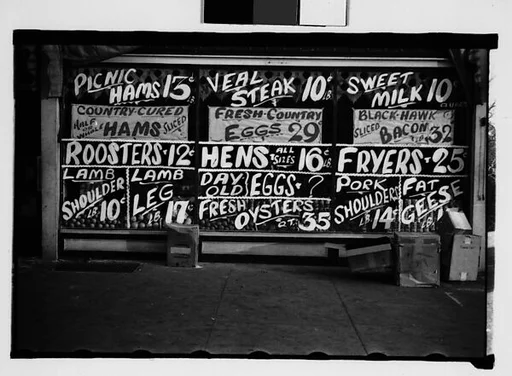 PICNIC
HAMS 13¢
LB.
COUNTRY-CURED
HALF OR WHOLE HAMS SLICED
ROOSTERS-12¢
LAMB
SHOULDER
LB. 10¢
LAMB
LEG
LB. 17¢
VEAL
STEAK 10¢
LB.
FRESH-COUNTRY
EGGS 29
HENS ALL SIZES 16¢
LB.
DAY OLD EGGS-?
FRESH OYSTERS
QT. 35
SWEET
MILK 10
BLACK-HAWK
SLICED BACON 32
FRYERS-25¢
PORK
SHOULDERS
LB. 14¢
FAT
GEESE
LB.